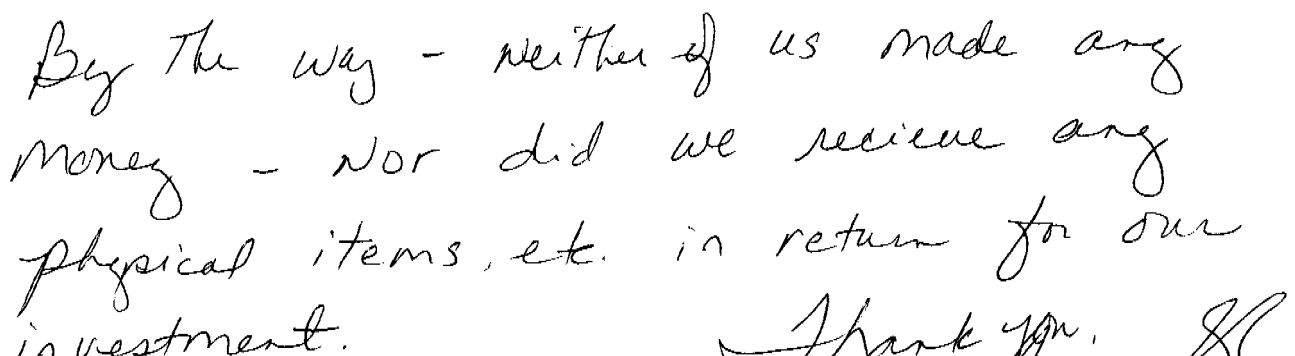 By The way - Neither of us made any
money - Nor did we recieve any
physical items, etc. in return for our
investment. Thank you.